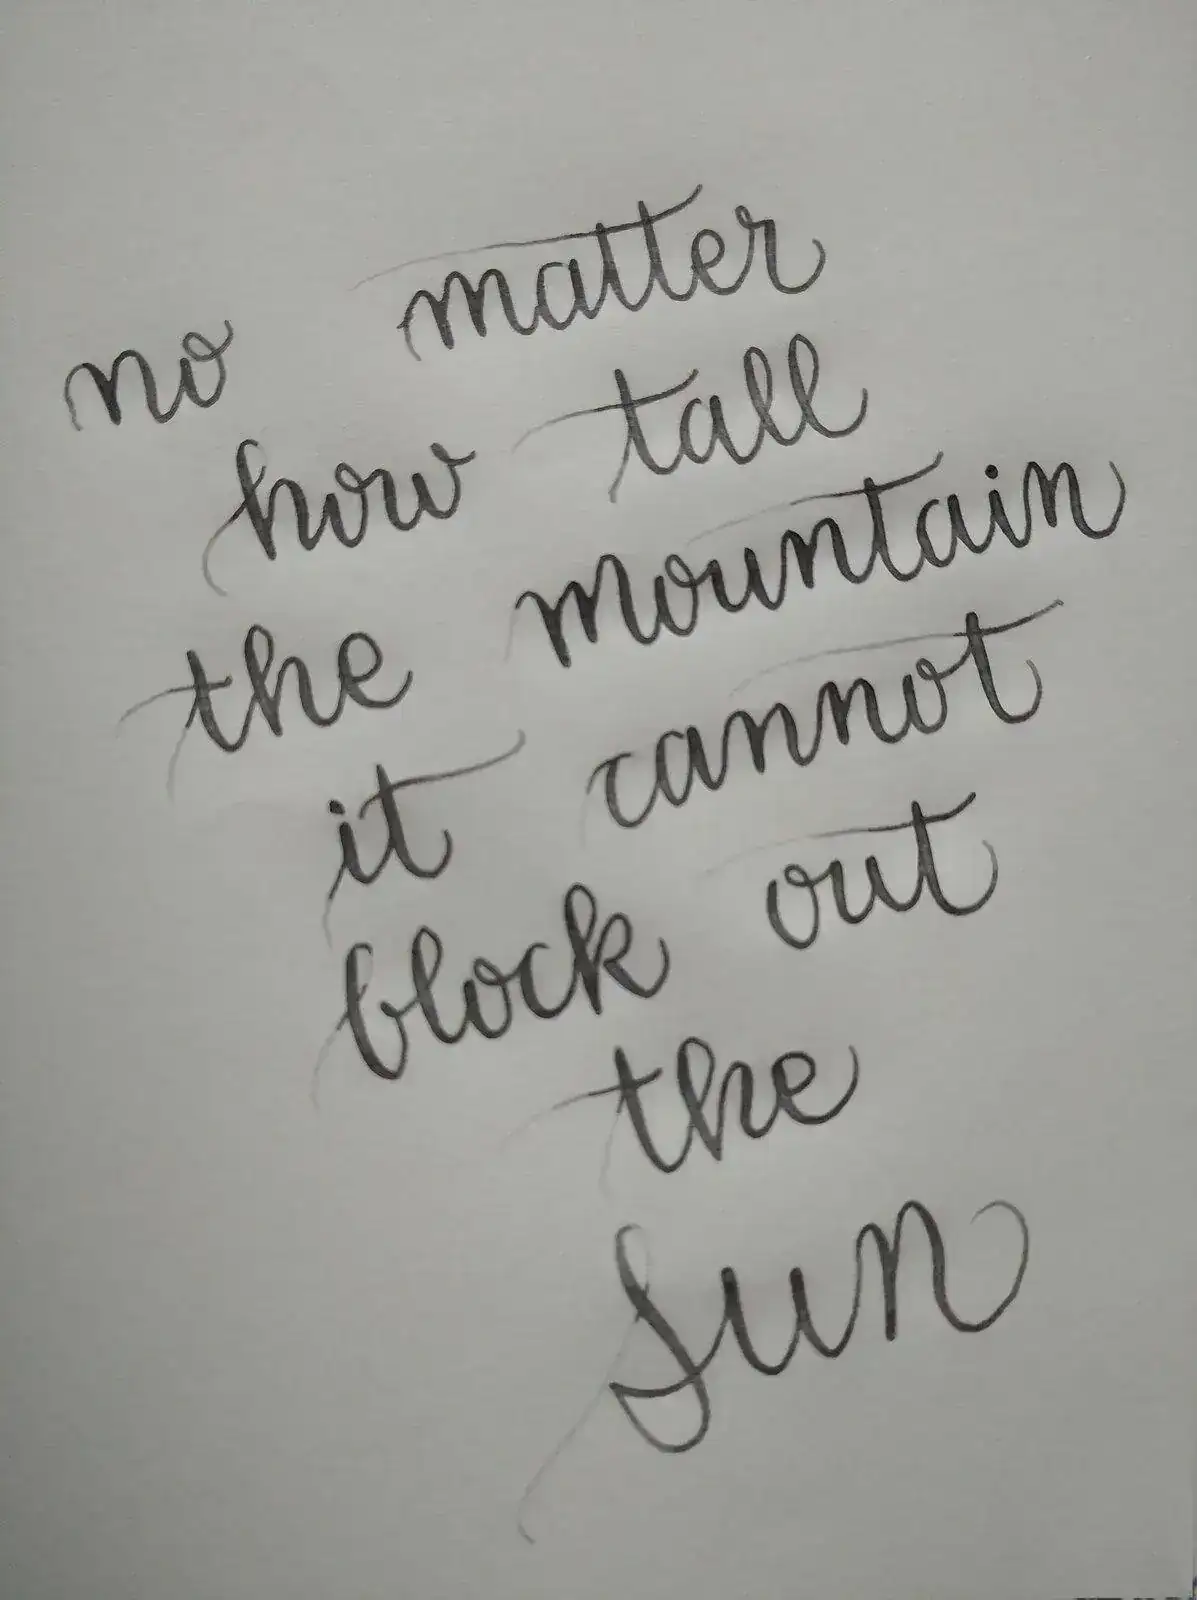 no matter
how tall
the mountain
it cannot
block out
the
Sun